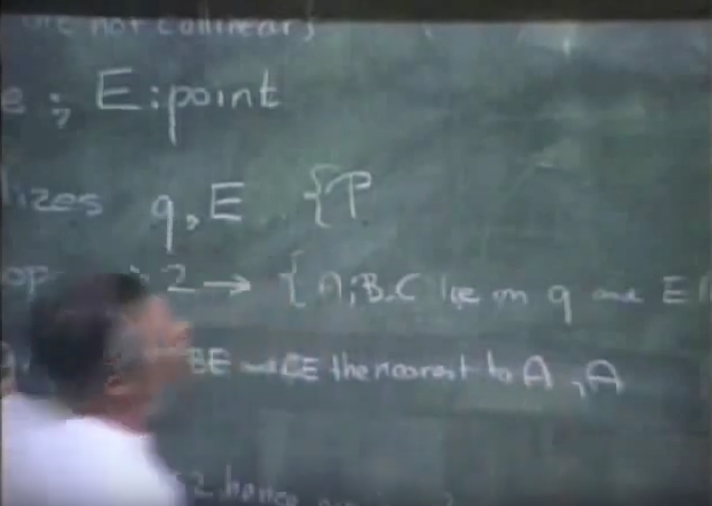 not collinear}
e ; E:point
lizes q, E {P
op 2 → { A,B,C lie on q and E
BE CE the nearest to A , A
2, hence